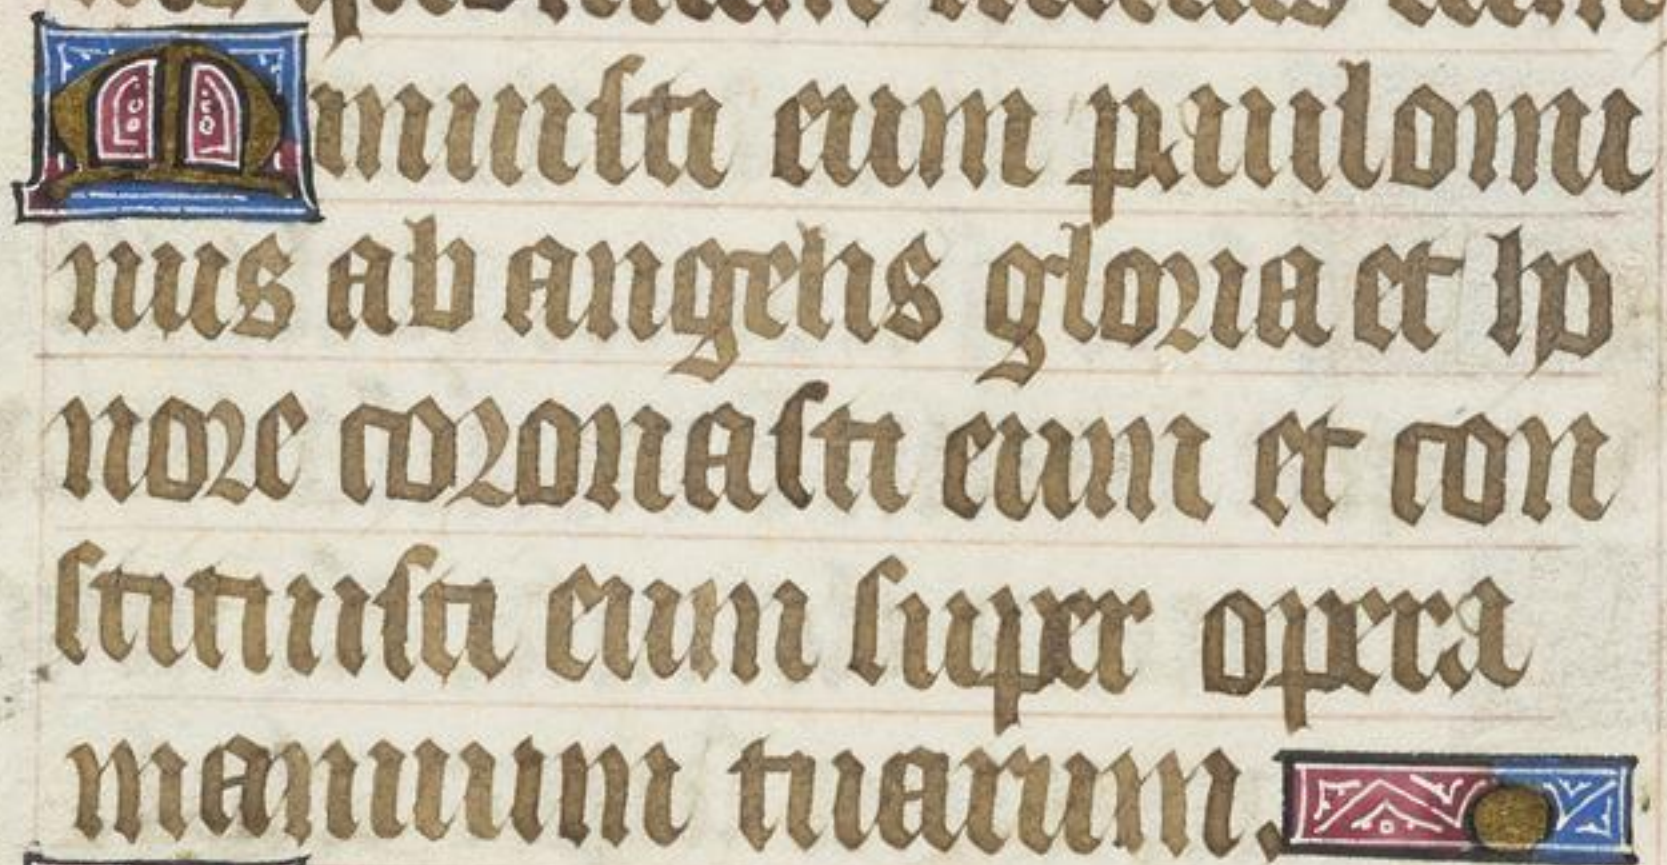 Minuisti eum paulomi
nus ab angelis gloria et ho
nore coronasti eum et con
stituisti eum super opera
manuum tuarum.